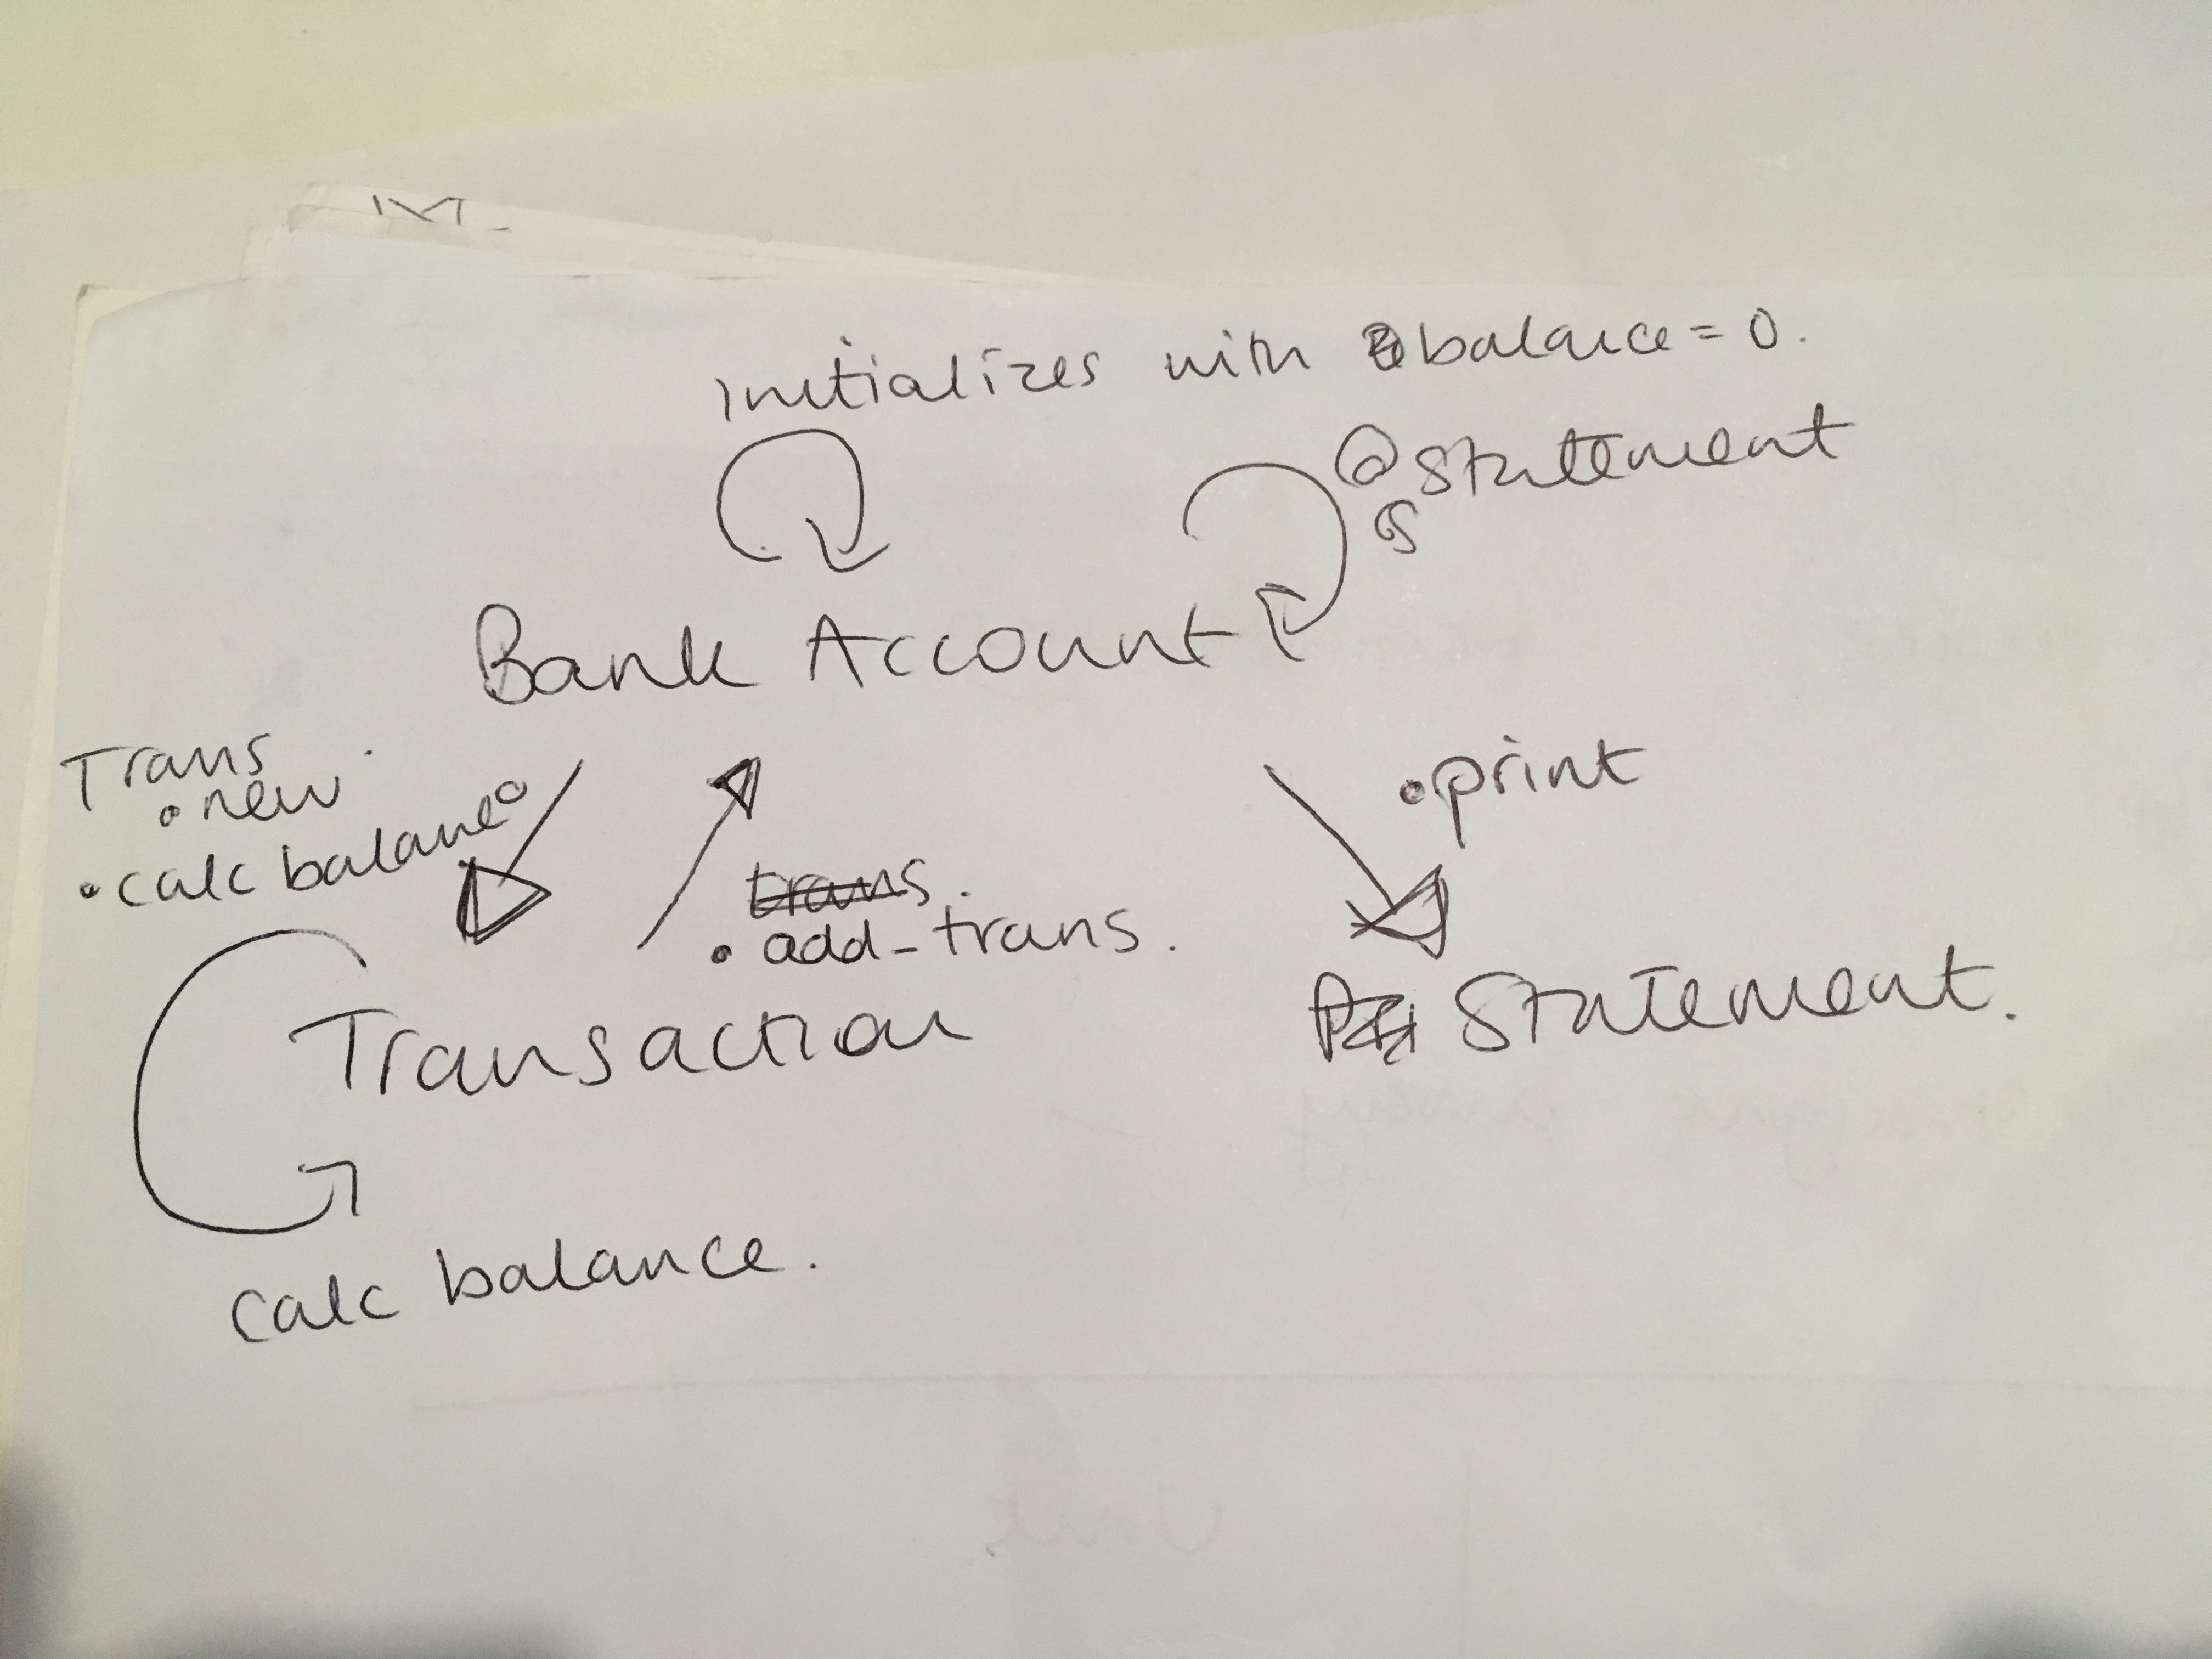 initializes with @balance = 0.
@statement
Bank Account
Trans
.new
.calc balance
.print
trans.
.add_trans.
Transaction
Statement.
calc balance.